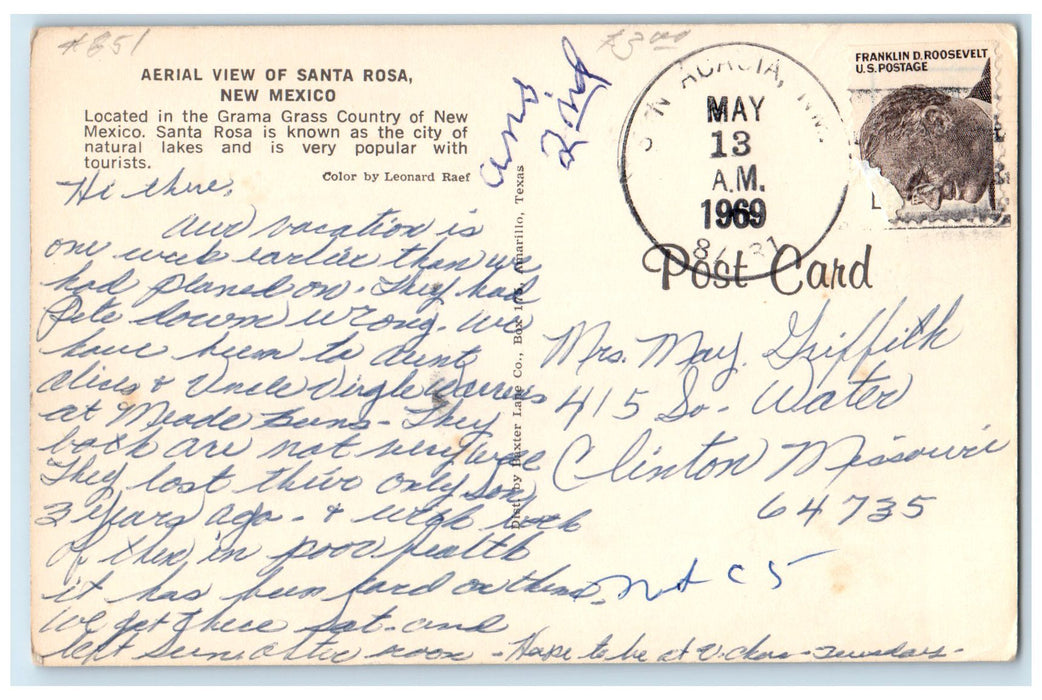 #851
£3.00
AERIAL VIEW OF SANTA ROSA,
NEW MEXICO
Located in the Grama Grass Country of New
Mexico. Santa Rosa is known as the city of
natural lakes and is very popular with
tourists.
Color by Leonard Raef
Hi there,
Our vacation is
one week earlier than we
had planed on. They had
Pete down wrong. We
have been to Aunt
Alices & Uncle Virgle Warrens
at Meade Kans - They
both are not very well
They lost their only son
3 years ago - & with both
of them in poor health
it has been hard on them.
We got there sat. and
left Sun. after noon - Hope to be at Vickas - Tuesday -
Dist. by Baxter Lane Co., Box Amarillo, Texas
ans
SAN ACACIA, N.M.
MAY
13
A.M.
1969
FRANKLIN D. ROOSEVELT
U.S. POSTAGE
Post Card
Mrs. May. Griffith
415 So. Water
Clinton Missouri
64735
not C S